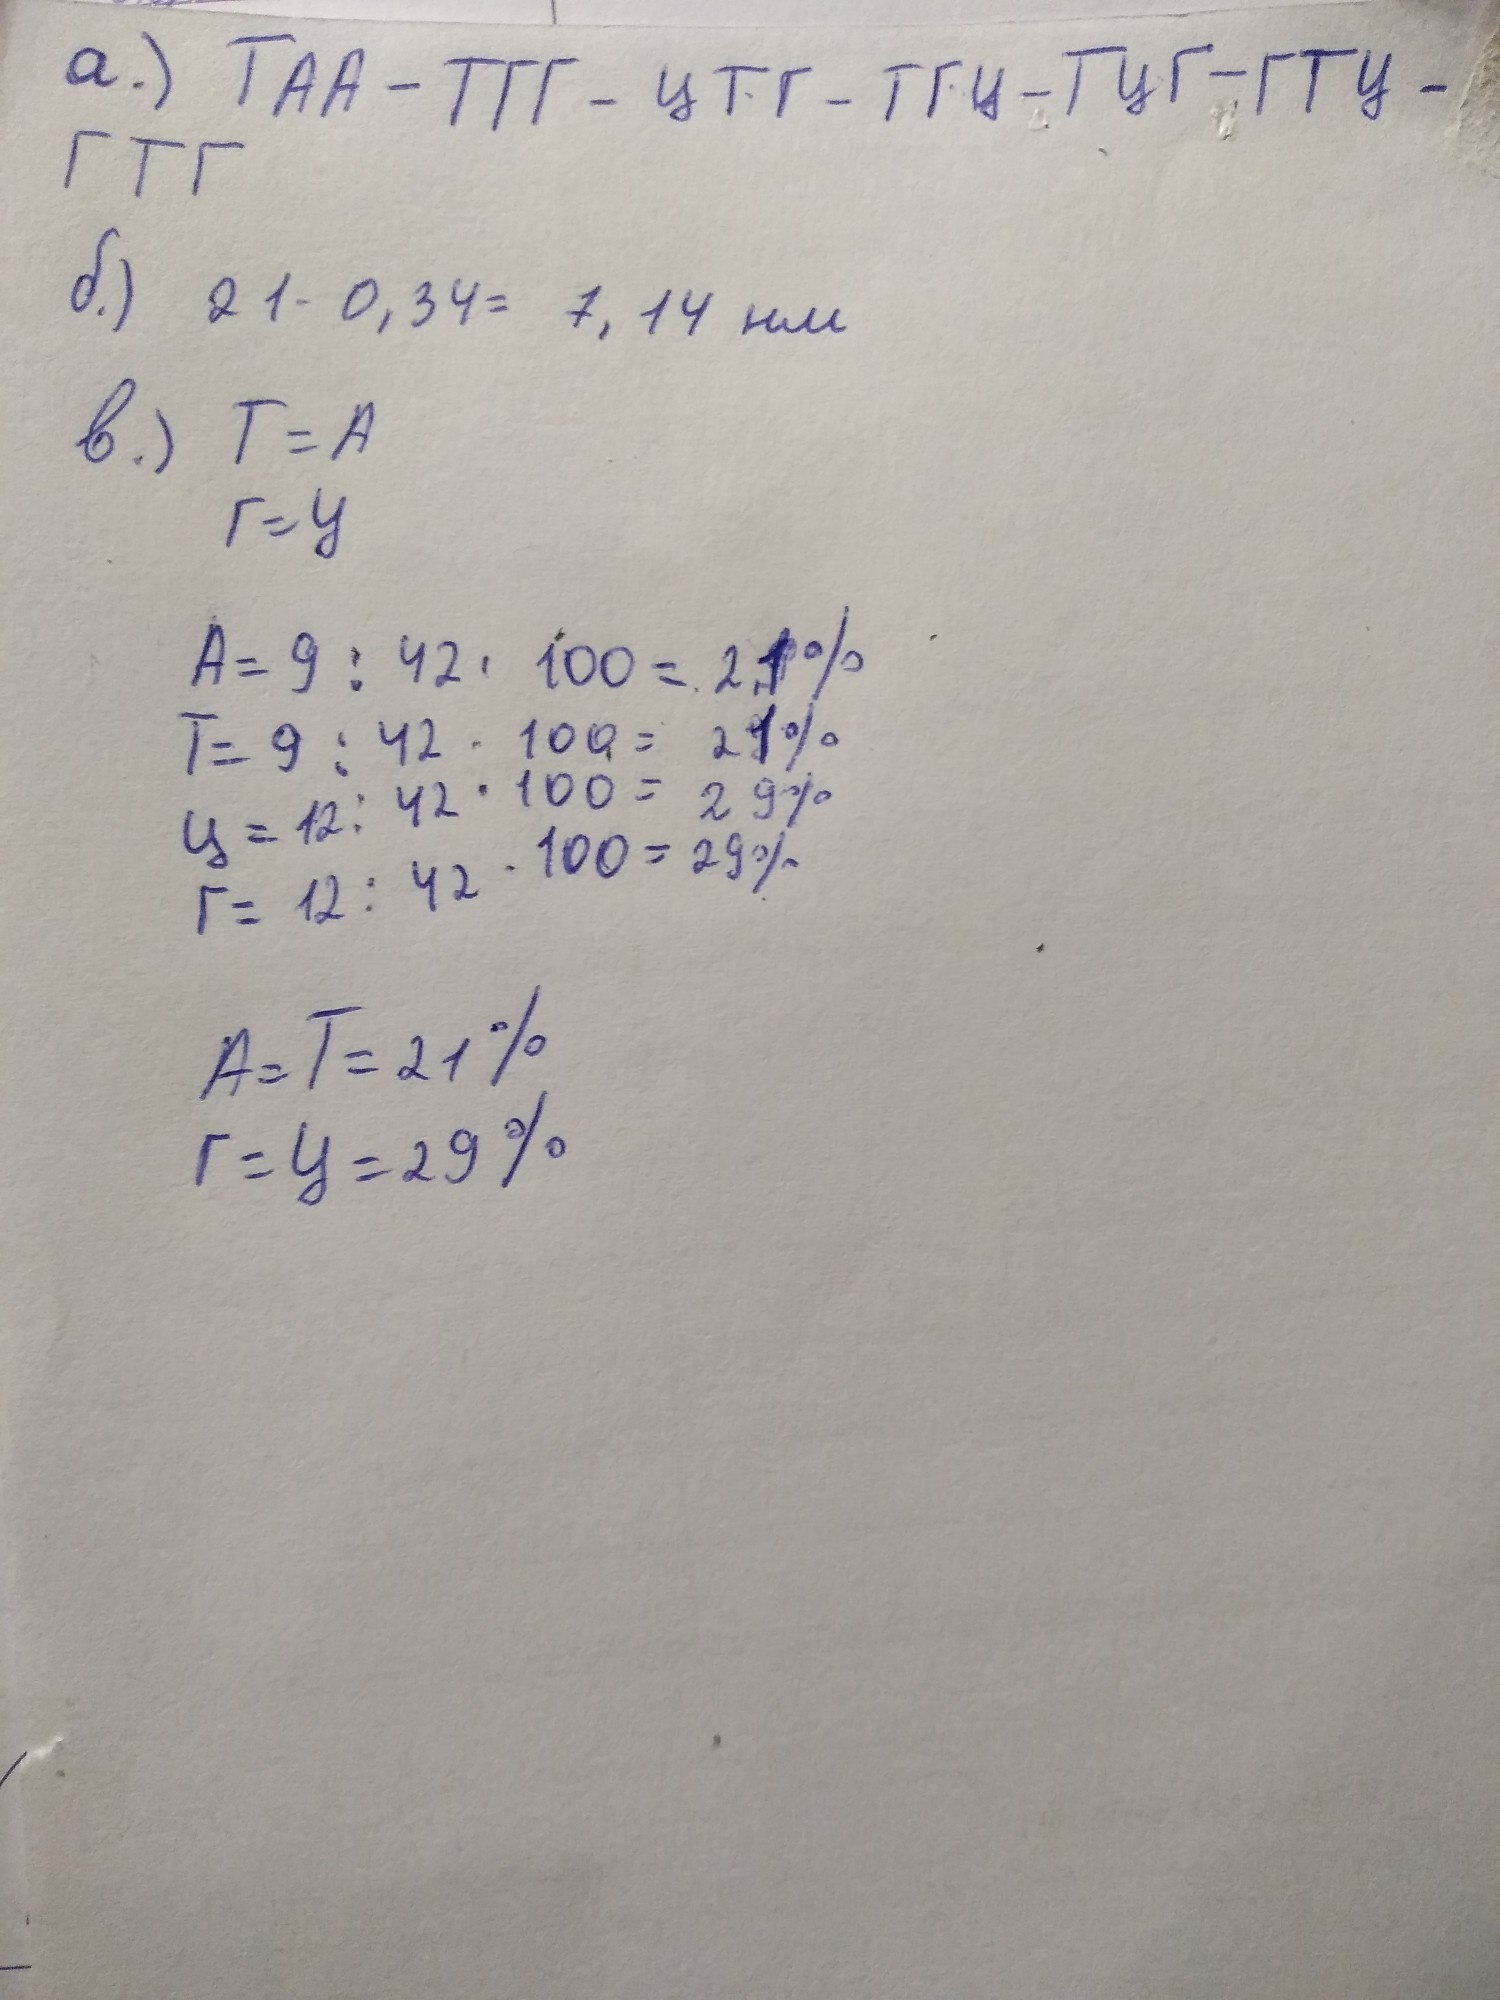 а.) ТАА - ТГГ - ЦТГ - ТГЦ - ТЦГ - ГТЦ -
ГТГ
б.) 21 · 0,34 = 7,14 нм
в.) Т = А
Г = Ц
А = 9 : 42 · 100 = 21%
Т = 9 : 42 · 100 = 21%
Ц = 12 : 42 · 100 = 29%
Г = 12 : 42 · 100 = 29%
А = Т = 21%
Г = Ц = 29%